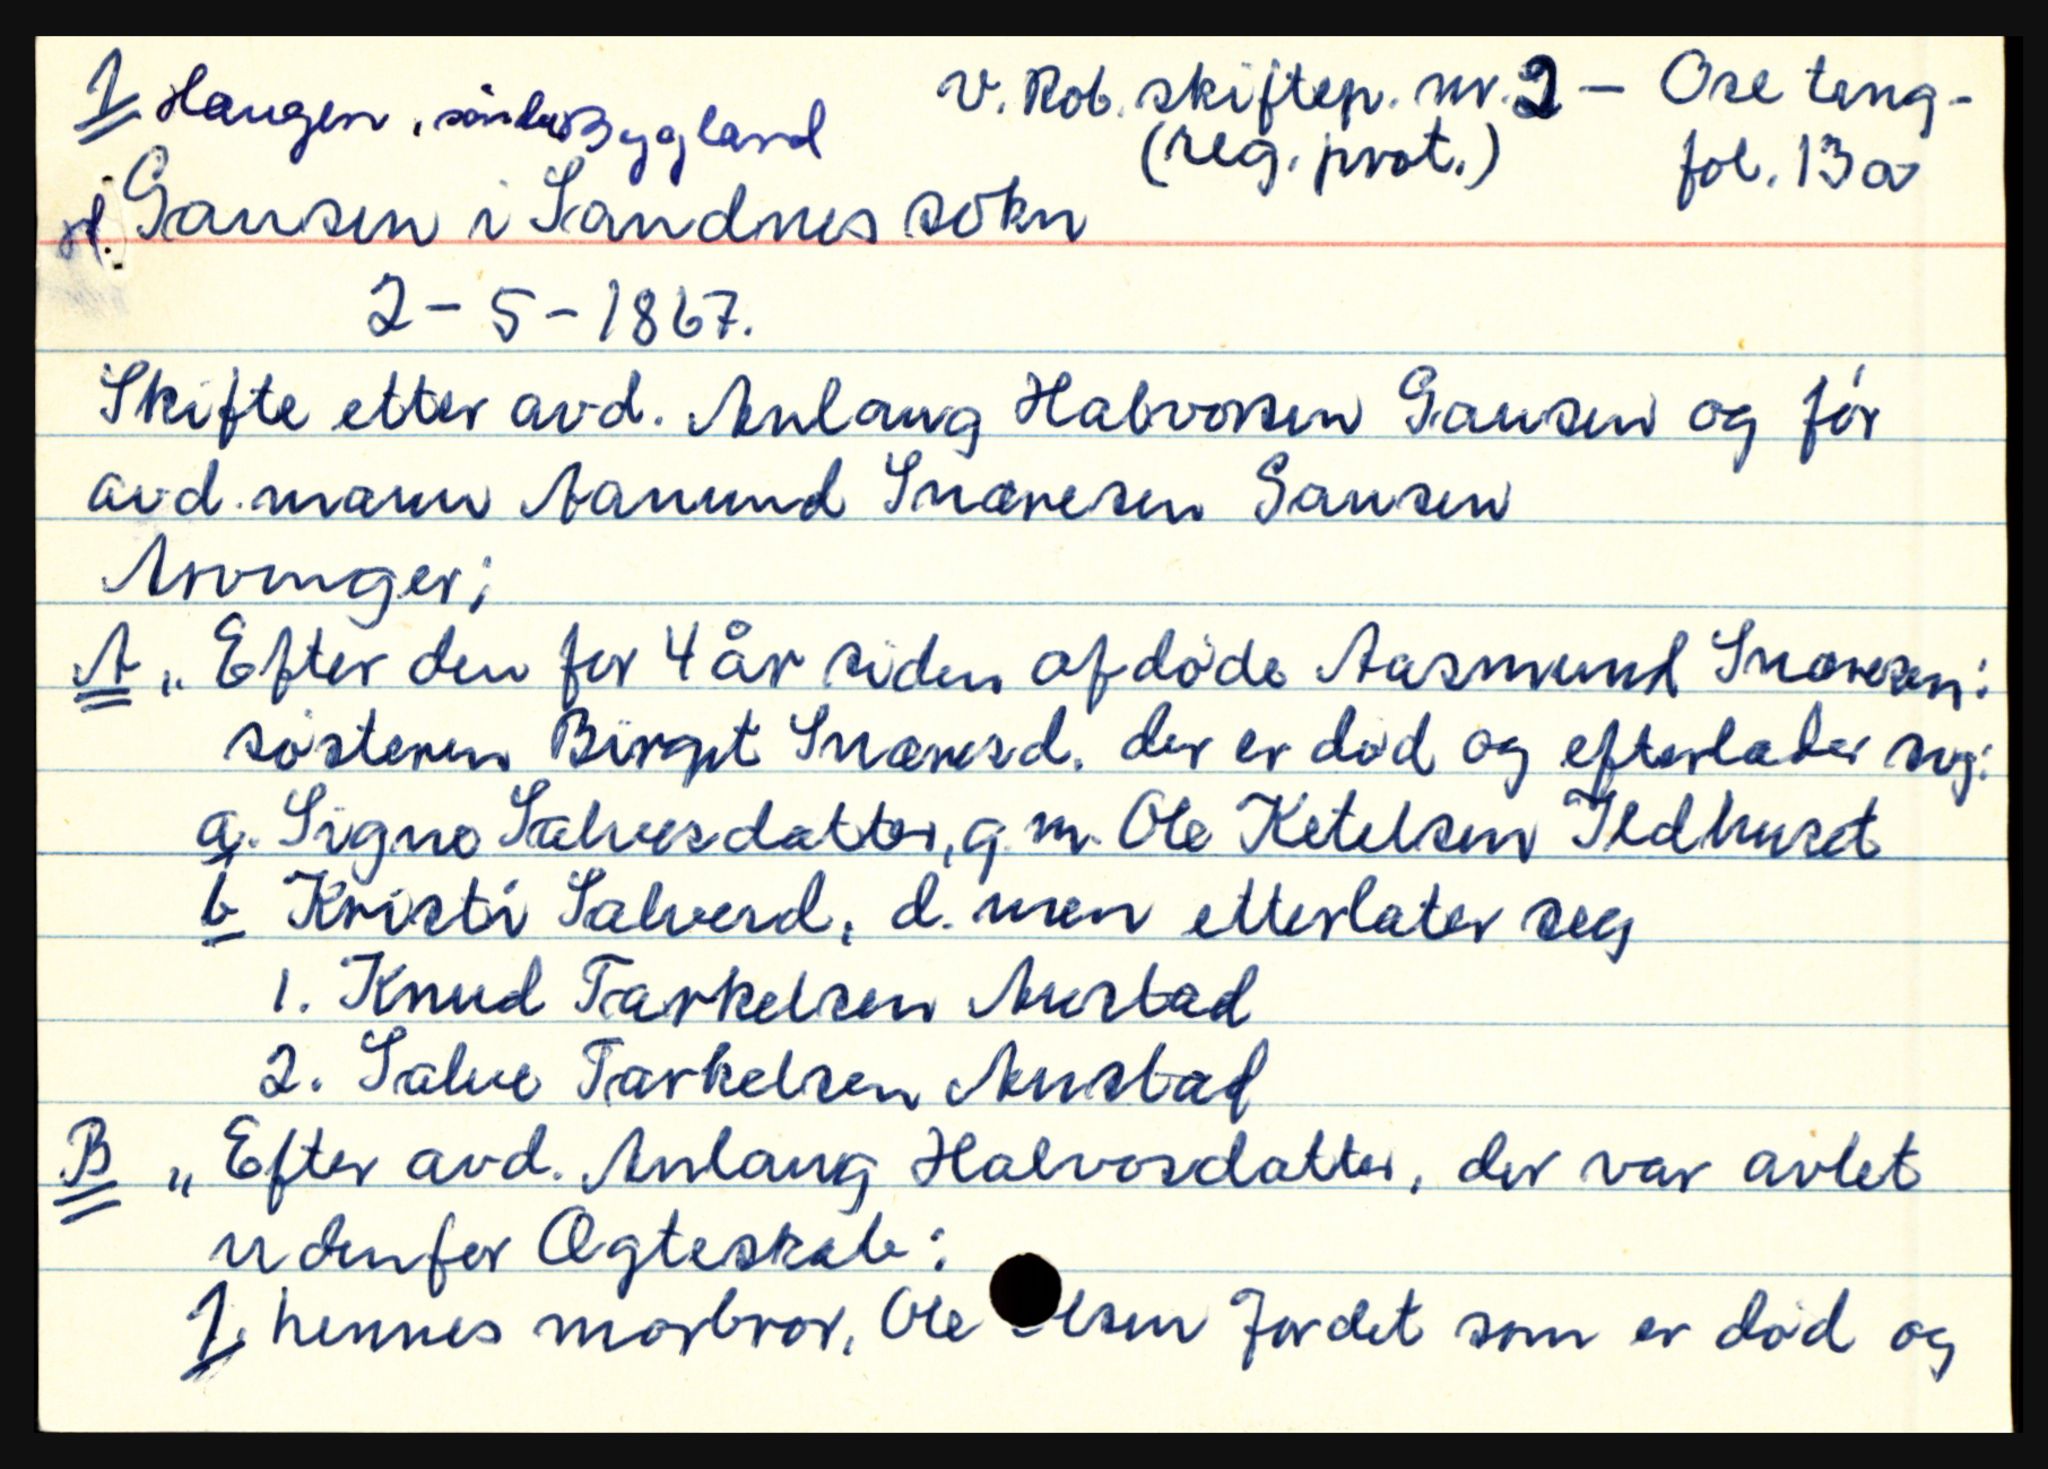 1 Haugen, søndre Bygland V. Rob. skiftep. nr. 2 - Ose teng-
(reg. prot.) fol. 13a
Gausen i Sandnes sokn
2-5-1867.
Skifte etter avd. Anlaug Halvorsen Gausen og før
avd. mann Aanund Snaresen Gausen
Arvinger;
A „ Efter den for 4 år siden afdøde Aasmund Snaresen:
søsteren Birgit Snaresd. der er død og efterlader sig:
a. Signe Salvesdatter, g.m. Ole Ketelsen Ildhuset
b Kristi Salvesd, d. men etterlater seg
1. Knud Tarkelsen Austad
2. Salve Tarkelsen Austad
B „ Efter avd. Anlaug Halvosdatter, der var avlet
udenfor Ægteskab:
1. hennes morbror, Ole lsen Jordet som er død og